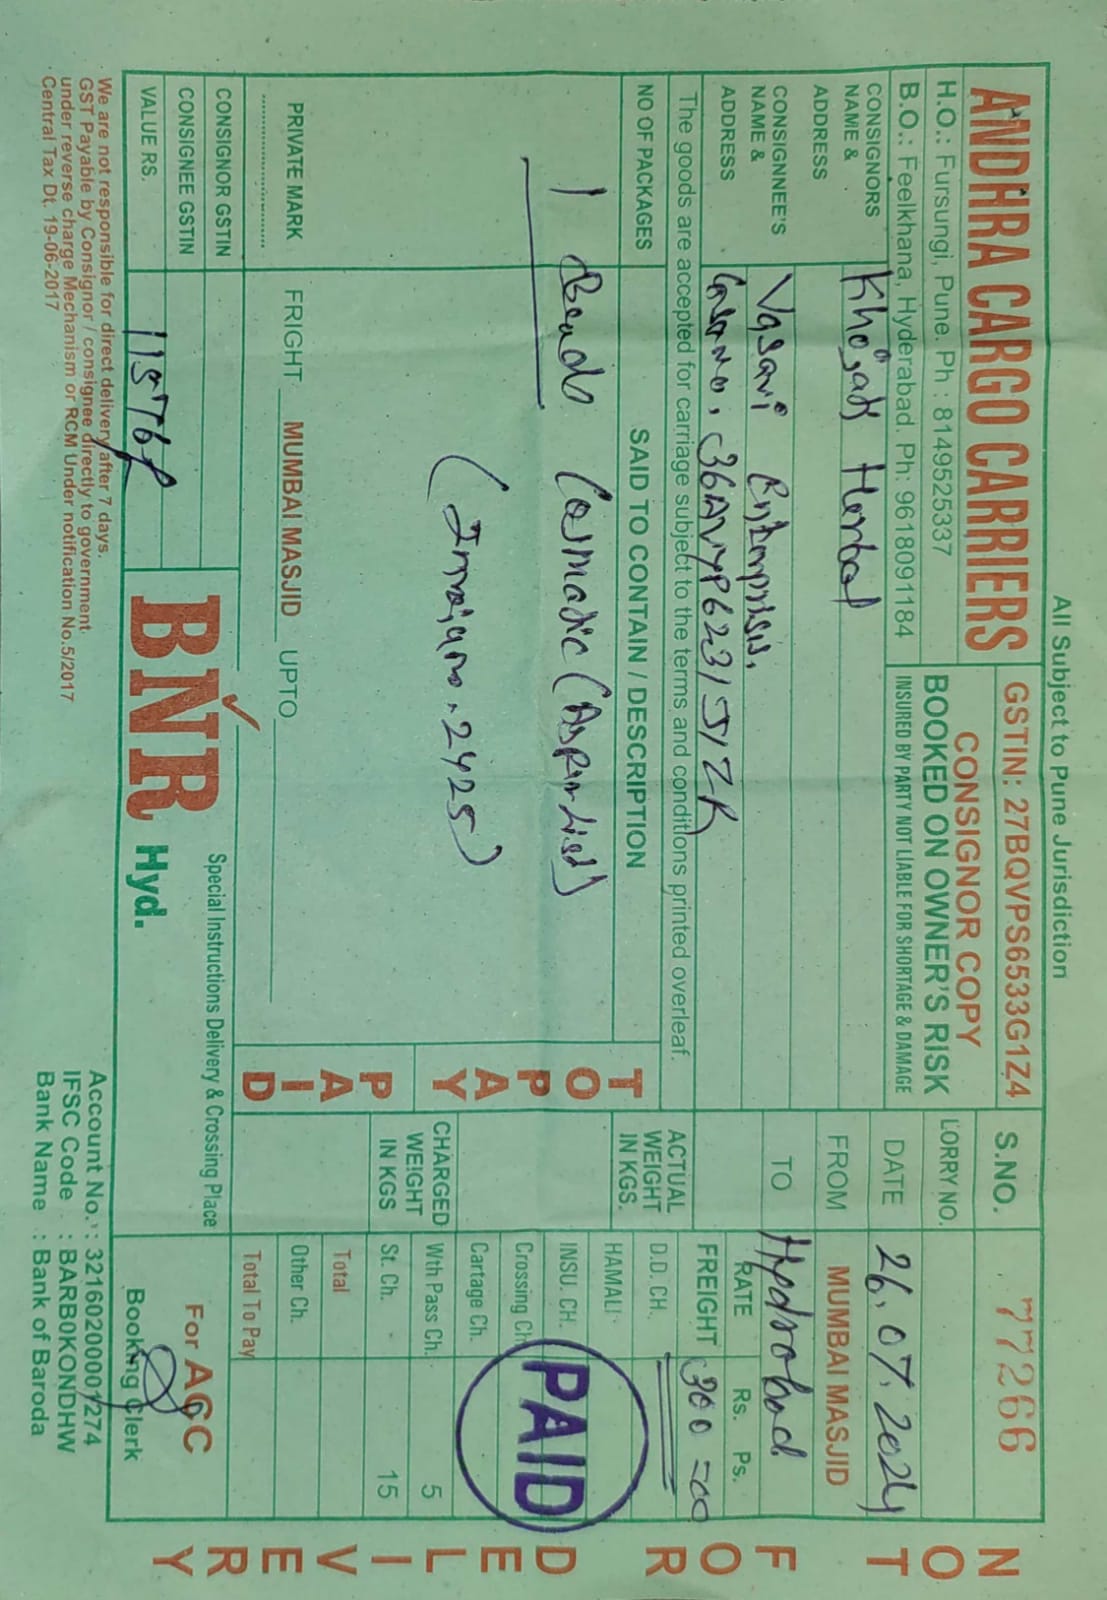 All Subject to Pune Jurisdiction
ANDHRA CARGO CARRIERS
H.O.: Fursungi, Pune. Ph : 8149525337
B.O.: Feelkhana, Hyderabad. Ph: 9618091184
GSTIN: 27BQVPS6533G1Z4
CONSIGNOR COPY
BOOKED ON OWNER'S RISK
INSURED BY PARTY NOT LIABLE FOR SHORTAGE & DAMAGE
S.NO. 77266
LORRY NO.
DATE 26.07.2024
FROM MUMBAI MASJID
TO Hydrobad
CONSIGNORS
NAME &
ADDRESS
Herbal
CONSIGNNEE'S
NAME &
ADDRESS
Vasavi
The goods are accepted for carriage subject to the terms and conditions printed overleaf.
NO OF PACKAGES
SAID TO CONTAIN / DESCRIPTION
1
Cosmatic
2425)
PRIVATE MARK
FRIGHT MUMBAI MASJID UPTO
TO PAY
PAID
ACTUAL
WEIGHT
IN KGS.
CHARGED
WEIGHT
IN KGS
RATE Rs. Ps.
FREIGHT 300=00
D.D. CH.
HAMALI
INSU. CH.
Crossing Ch.
Cartage Ch.
Wth Pass Ch. 5
St. Ch. 15
Total
Other Ch.
Total To Pay
PAID
CONSIGNOR GSTIN
CONSIGNEE GSTIN
VALUE RS. 11576/
BNR Hyd.
Special Instructions Delivery & Crossing Place
For ACC
Booking Clerk
We are not responsible for direct delivery after 7 days.
GST Payable by Consignor / consignee directly to government
under reverse charge Mechanism or RCM Under notification No.5/2017
Central Tax Dt. 19-06-2017
Account No. : 32160200001274
IFSC Code : BARB0KONDHW
Bank Name : Bank of Baroda
NOT FOR DELIVERY